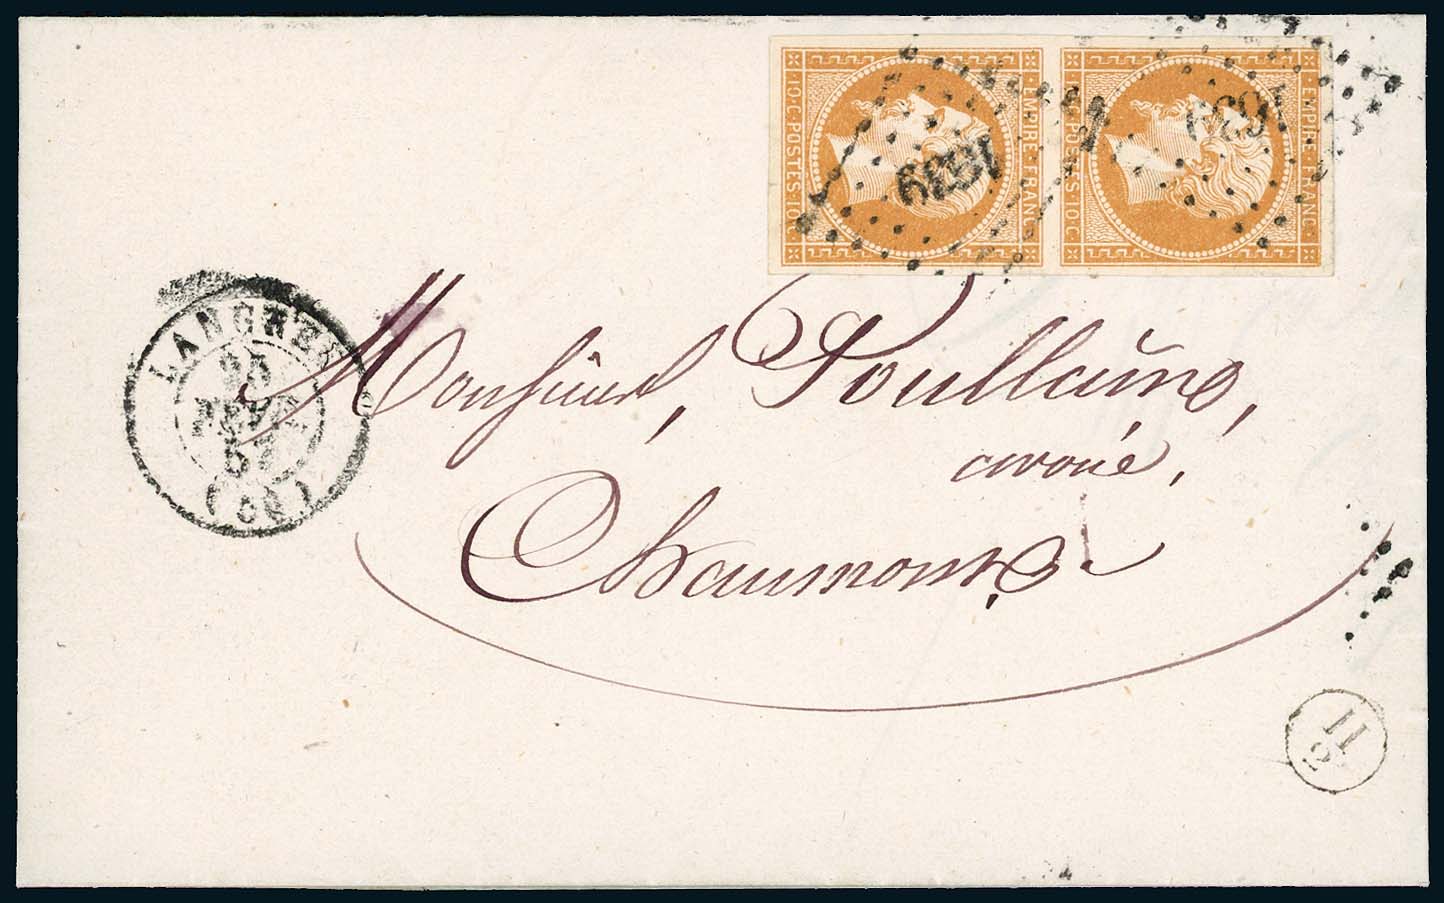 10·C·POSTES·10·C
EMPIRE·FRANC·
POSTES·10·C
EMPIRE·FRANC·
1639
1639
LANGRES
25
FEVR
57
(50)
Monsieur, Poullaine,
avoué,
Chaumont
H
2